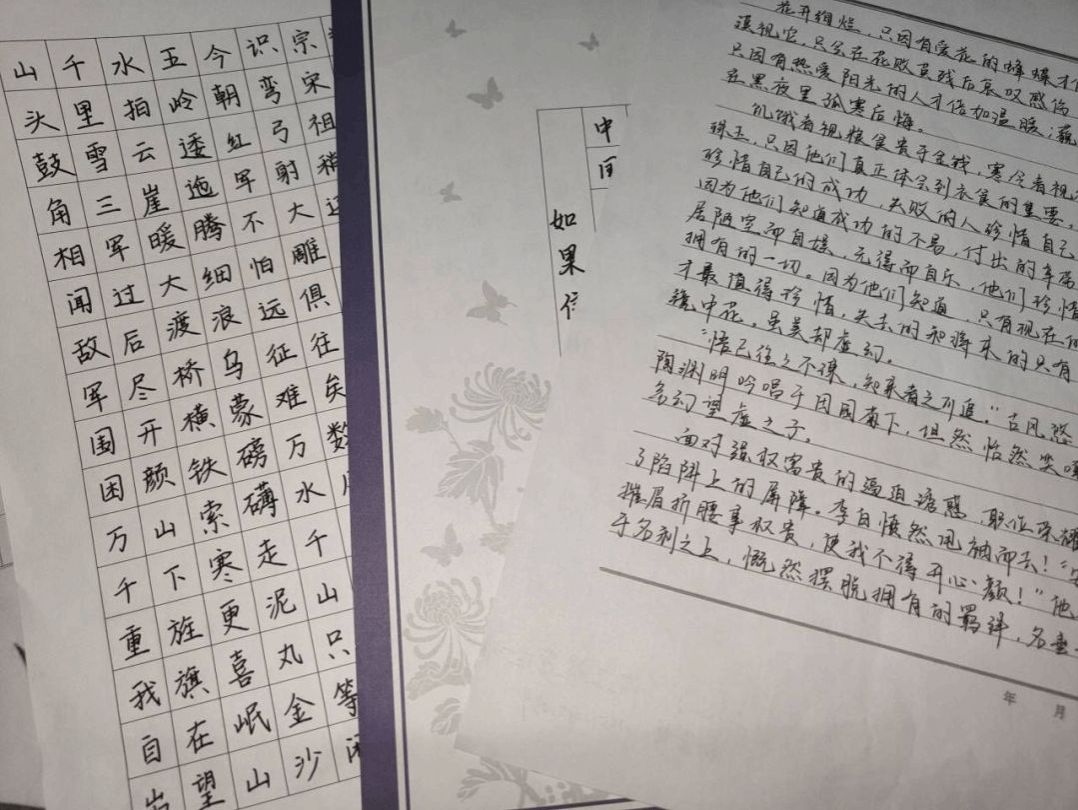 宗宋祖稍
识弯弓射大雕俱往矣数
今朝红军不怕远征难万水千山只等闲
五岭逶迤腾细浪乌蒙磅礴走泥丸金沙
水拍云崖暖大渡桥横铁索寒更喜岷山
千里雪三军过后尽开颜山下旌旗在望
山头鼓角相闻敌军围困万千重我自岿
中
如果
花开绚烂,只因有爱花的蜂蝶才
漠视它,只会在花败草残后哀叹感伤
只因有热爱阳光的人才倍加温暖;藐
在黑夜里孤寒后悔。
饥饿者视粮食贵于金钱,寒冷者视
珠玉,只因他们真正体会到衣食的重要,
珍惜自己的成功,失败的人珍惜自己
因为他们知道成功的不易,付出的辛
居陋室而自娱,无得而自乐,他们珍惜
拥有的一切。因为他们知道,只有现在的
才最值得珍惜,失去的和将来的只有
镜中花,虽美却虚幻。
“悟已往之不谏,知来者之可追。”古风悠
陶渊明吟唱于田园南下,坦然怡然笑
多幻望虚之子。
面对强权富贵的逼迫诱惑,职位荣耀
了陷阱上的屏障。李白愤然甩袖而去!“安
摧眉折腰事权贵,使我不得开心颜!”他
于名利之上,慨然摆脱拥有的羁绊,名垂
年 月